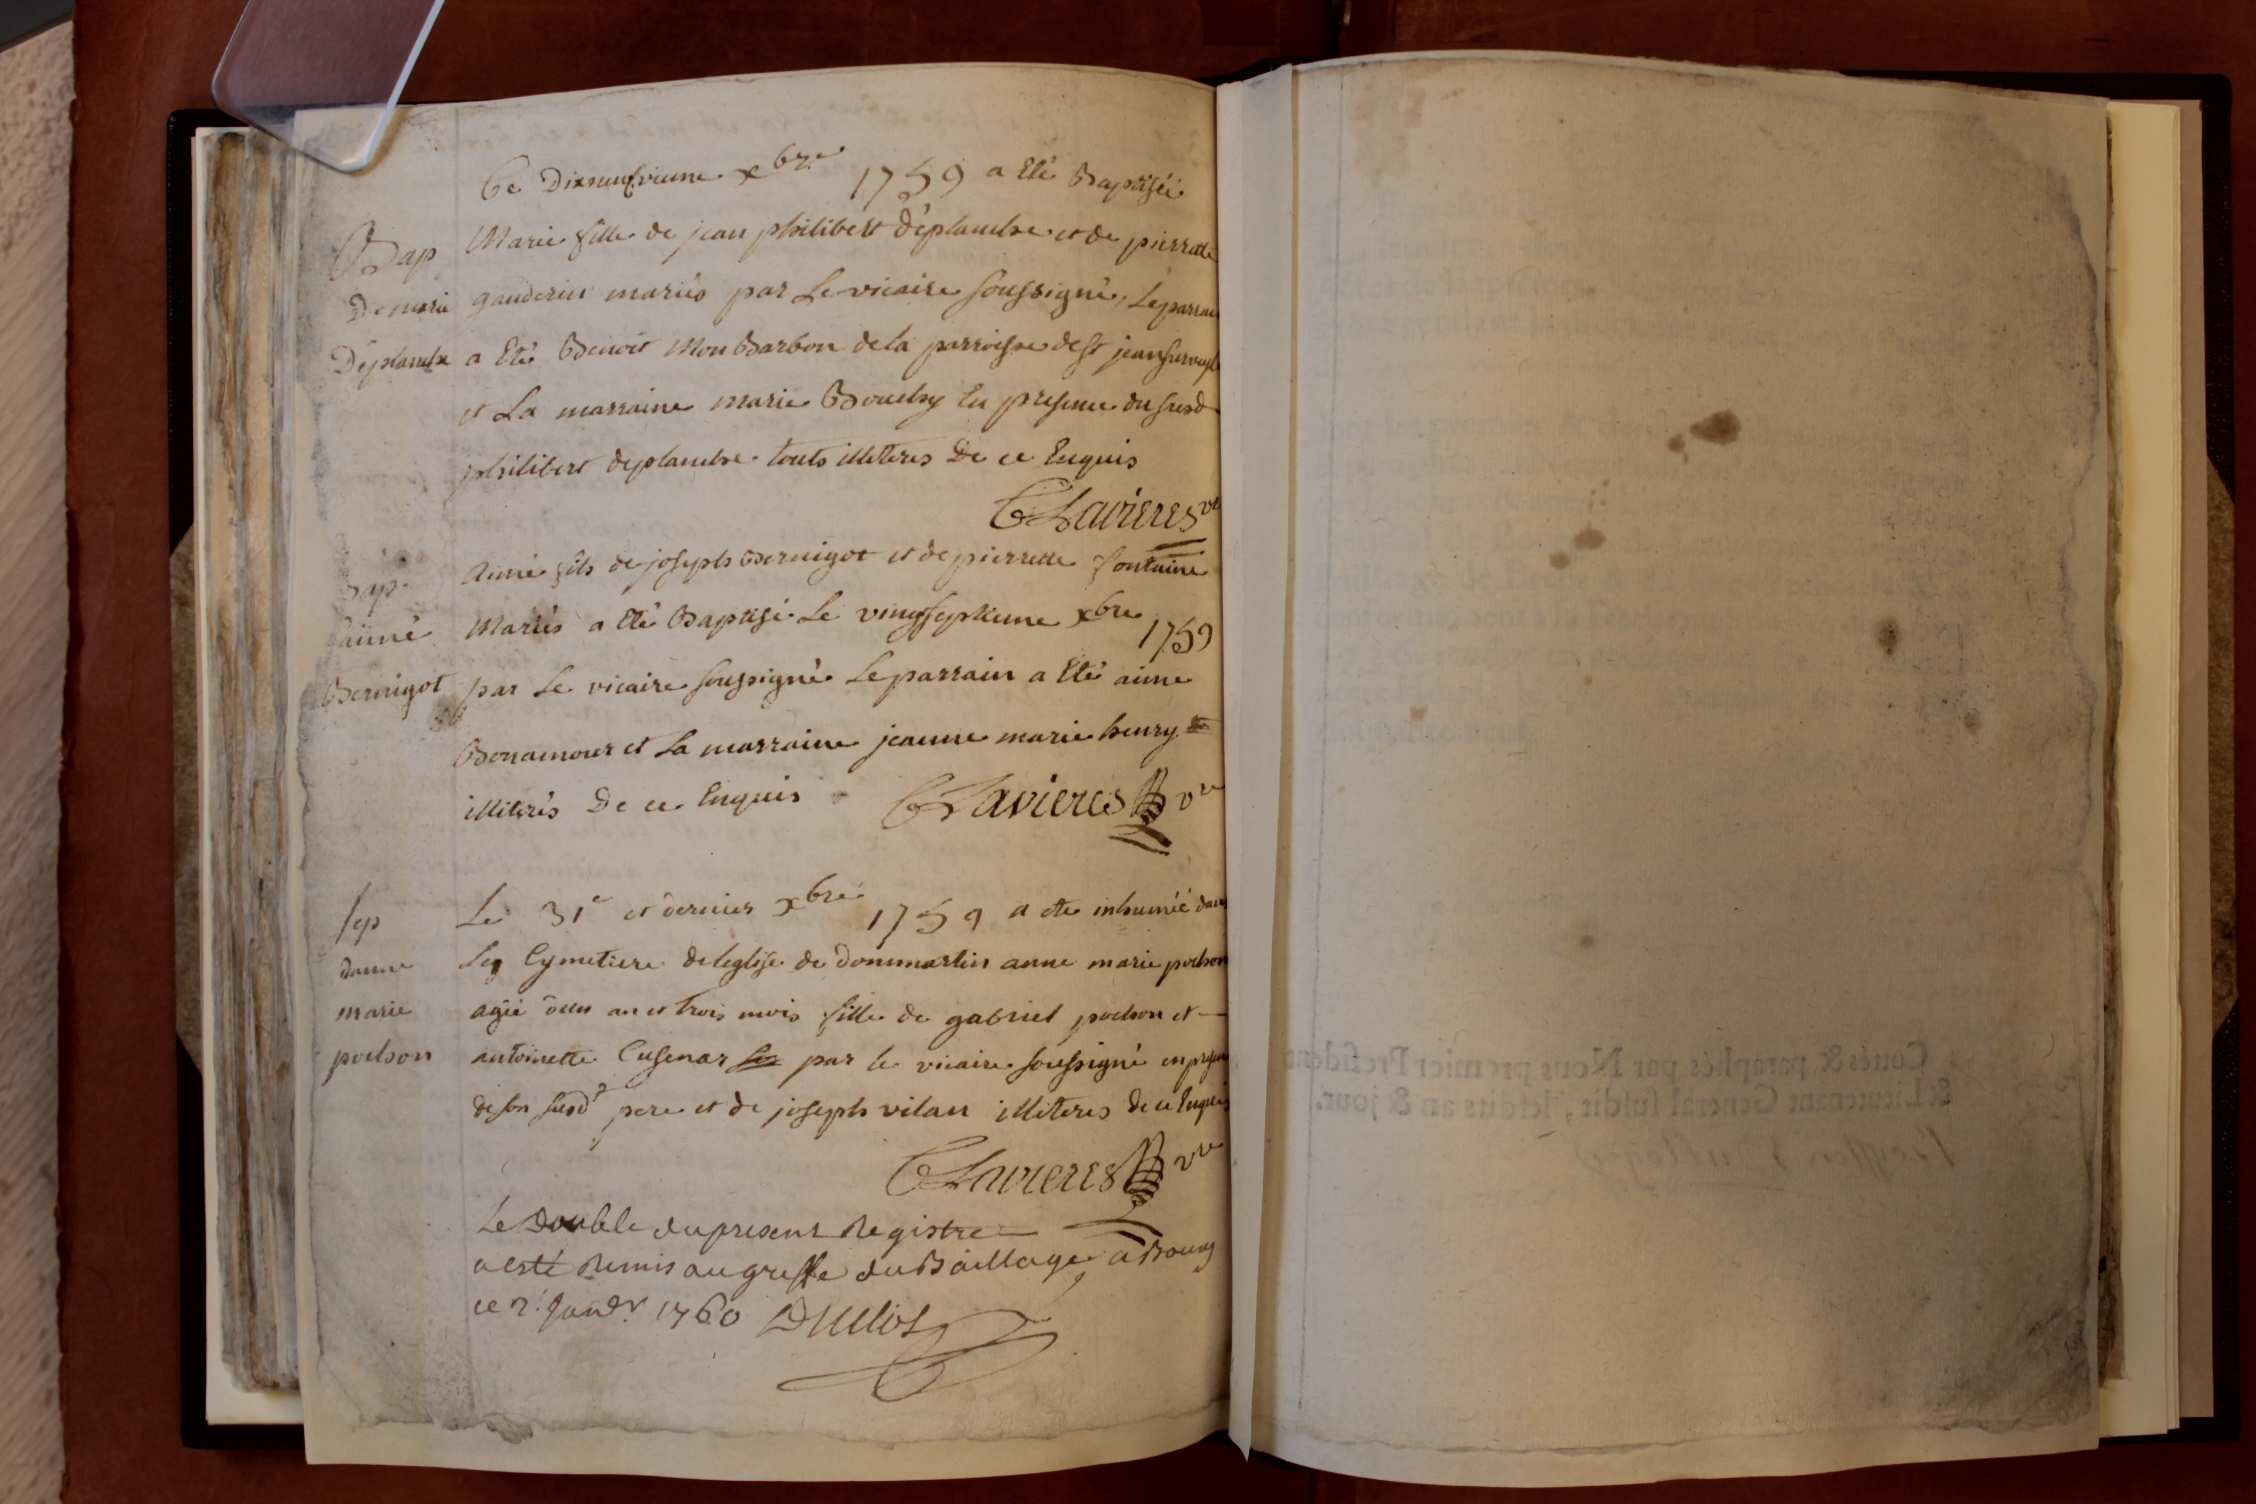 Ce Dixneufvieme xbre 1759 a Eté Baptiséé
Bap Marie fille de jean philibert déplanche et de pierrette
De marie gauderin mariés par Le vicaire soussigné, Le parrain
Déplanche a Eté Benoit Mon Barbon de la parroisse de St jean sur veyle
et La marraine marie Bouchy En presence du susd
philibert deplanche touts illiteres De ce Enquis
CLavieres vre
Bap Aimé fils de joseph Bernigot et de pierrette fontaine
d'aimé Mariés a Eté Baptisé Le vingtseptieme xbre 1759
Bernigot par Le vicaire soussigné Le parrain a Eté aimé
Bonamour et La marraine jeanne marie henry
illiterés De ce Enquis CLavieres vre
Sep Le 31e et dernier xbre 1759 a ete inhuméé dans
danne Le Cymetiere de leglise de dommartin anne marie pochon
marie agéé dun an et trois mois fille de gabriel pochon et
pochon antoinette Cusenar par le vicaire soussigné en presence
de son susdt pere et de joseph vilan illiteres de ce Enquis
CLavieres vre
Le Double du present Registre
a esté Remis au greffe du Baillage a Bourg
ce 2e Janvr 1760 Duclos
Cotés & paraphés par Nous premier Président
& Lieutenant General susdit, lesdits an & jour.